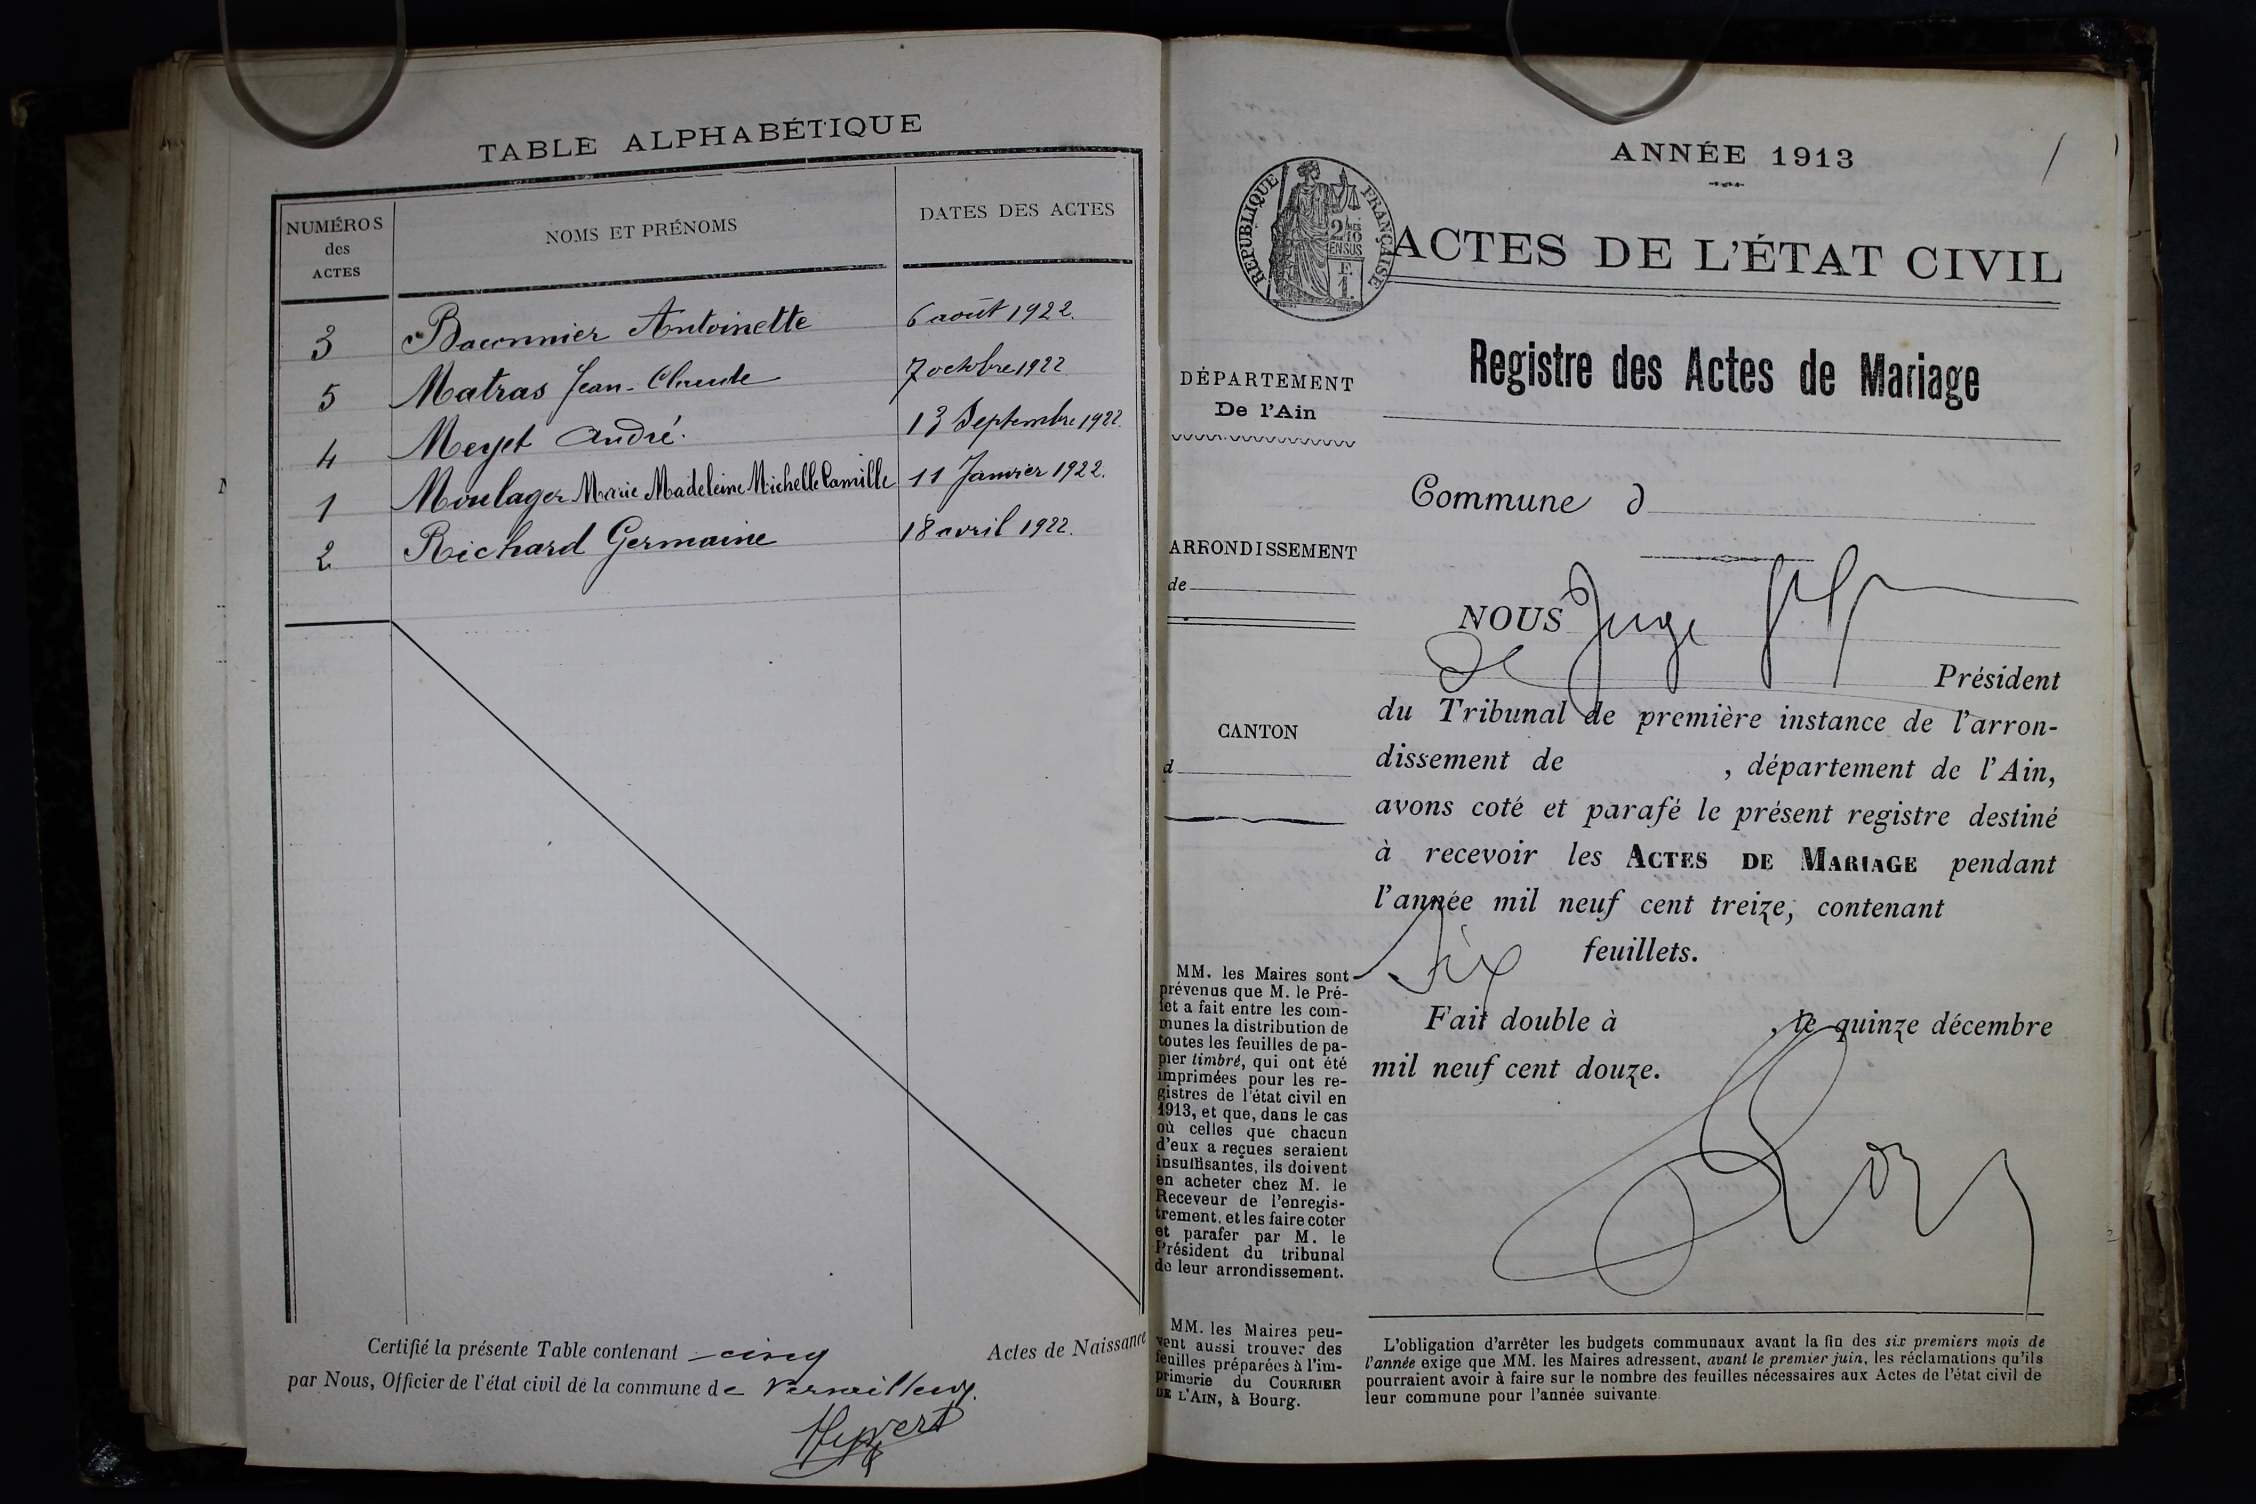 TABLE ALPHABÉTIQUE
NUMÉROS des ACTES
NOMS ET PRÉNOMS
DATES DES ACTES
3 Baconnier Antoinette 6 août 1922.
5 Matras Jean-Claude 7 octobre 1922
4 Meyet André. 13 Septembre 1922.
1 Moulager Marie Madeleine Michelle Camille 11 Janvier 1922.
2 Richard Germaine 18 avril 1922.
Certifié la présente Table contenant cinq Actes de Naissance
par Nous, Officier de l'état civil de la commune de
ANNÉE 1913
1
RÉPUBLIQUE FRANÇAISE
2/10 EN SUS
F. 1.
ACTES DE L'ÉTAT CIVIL
Registre des Actes de Mariage
DÉPARTEMENT
De l'Ain
Commune d
ARRONDISSEMENT
de
NOUS Juge
Président
du Tribunal de première instance de l'arron-
dissement de , département de l'Ain,
avons coté et parafé le présent registre destiné
à recevoir les ACTES DE MARIAGE pendant
l'année mil neuf cent treize, contenant
six feuillets.
Fait double à , le quinze décembre
mil neuf cent douze.
CANTON
d
MM. les Maires sont
prévenus que M. le Pré-
fet a fait entre les com-
munes la distribution de
toutes les feuilles de pa-
pier timbré, qui ont été
imprimées pour les re-
gistres de l'état civil en
1913, et que, dans le cas
où celles que chacun
d'eux a reçues seraient
insuffisantes, ils doivent
en acheter chez M. le
Receveur de l'enregis-
trement, et les faire coter
et parafer par M. le
Président du tribunal
de leur arrondissement.
MM. les Maires peu-
vent aussi trouver des
feuilles préparées à l'im-
primerie du COURRIER
DE L'AIN, à Bourg.
L'obligation d'arrêter les budgets communaux avant la fin des six premiers mois de
l'année exige que MM. les Maires adressent, avant le premier juin, les réclamations qu'ils
pourraient avoir à faire sur le nombre des feuilles nécessaires aux Actes de l'état civil de
leur commune pour l'année suivante.